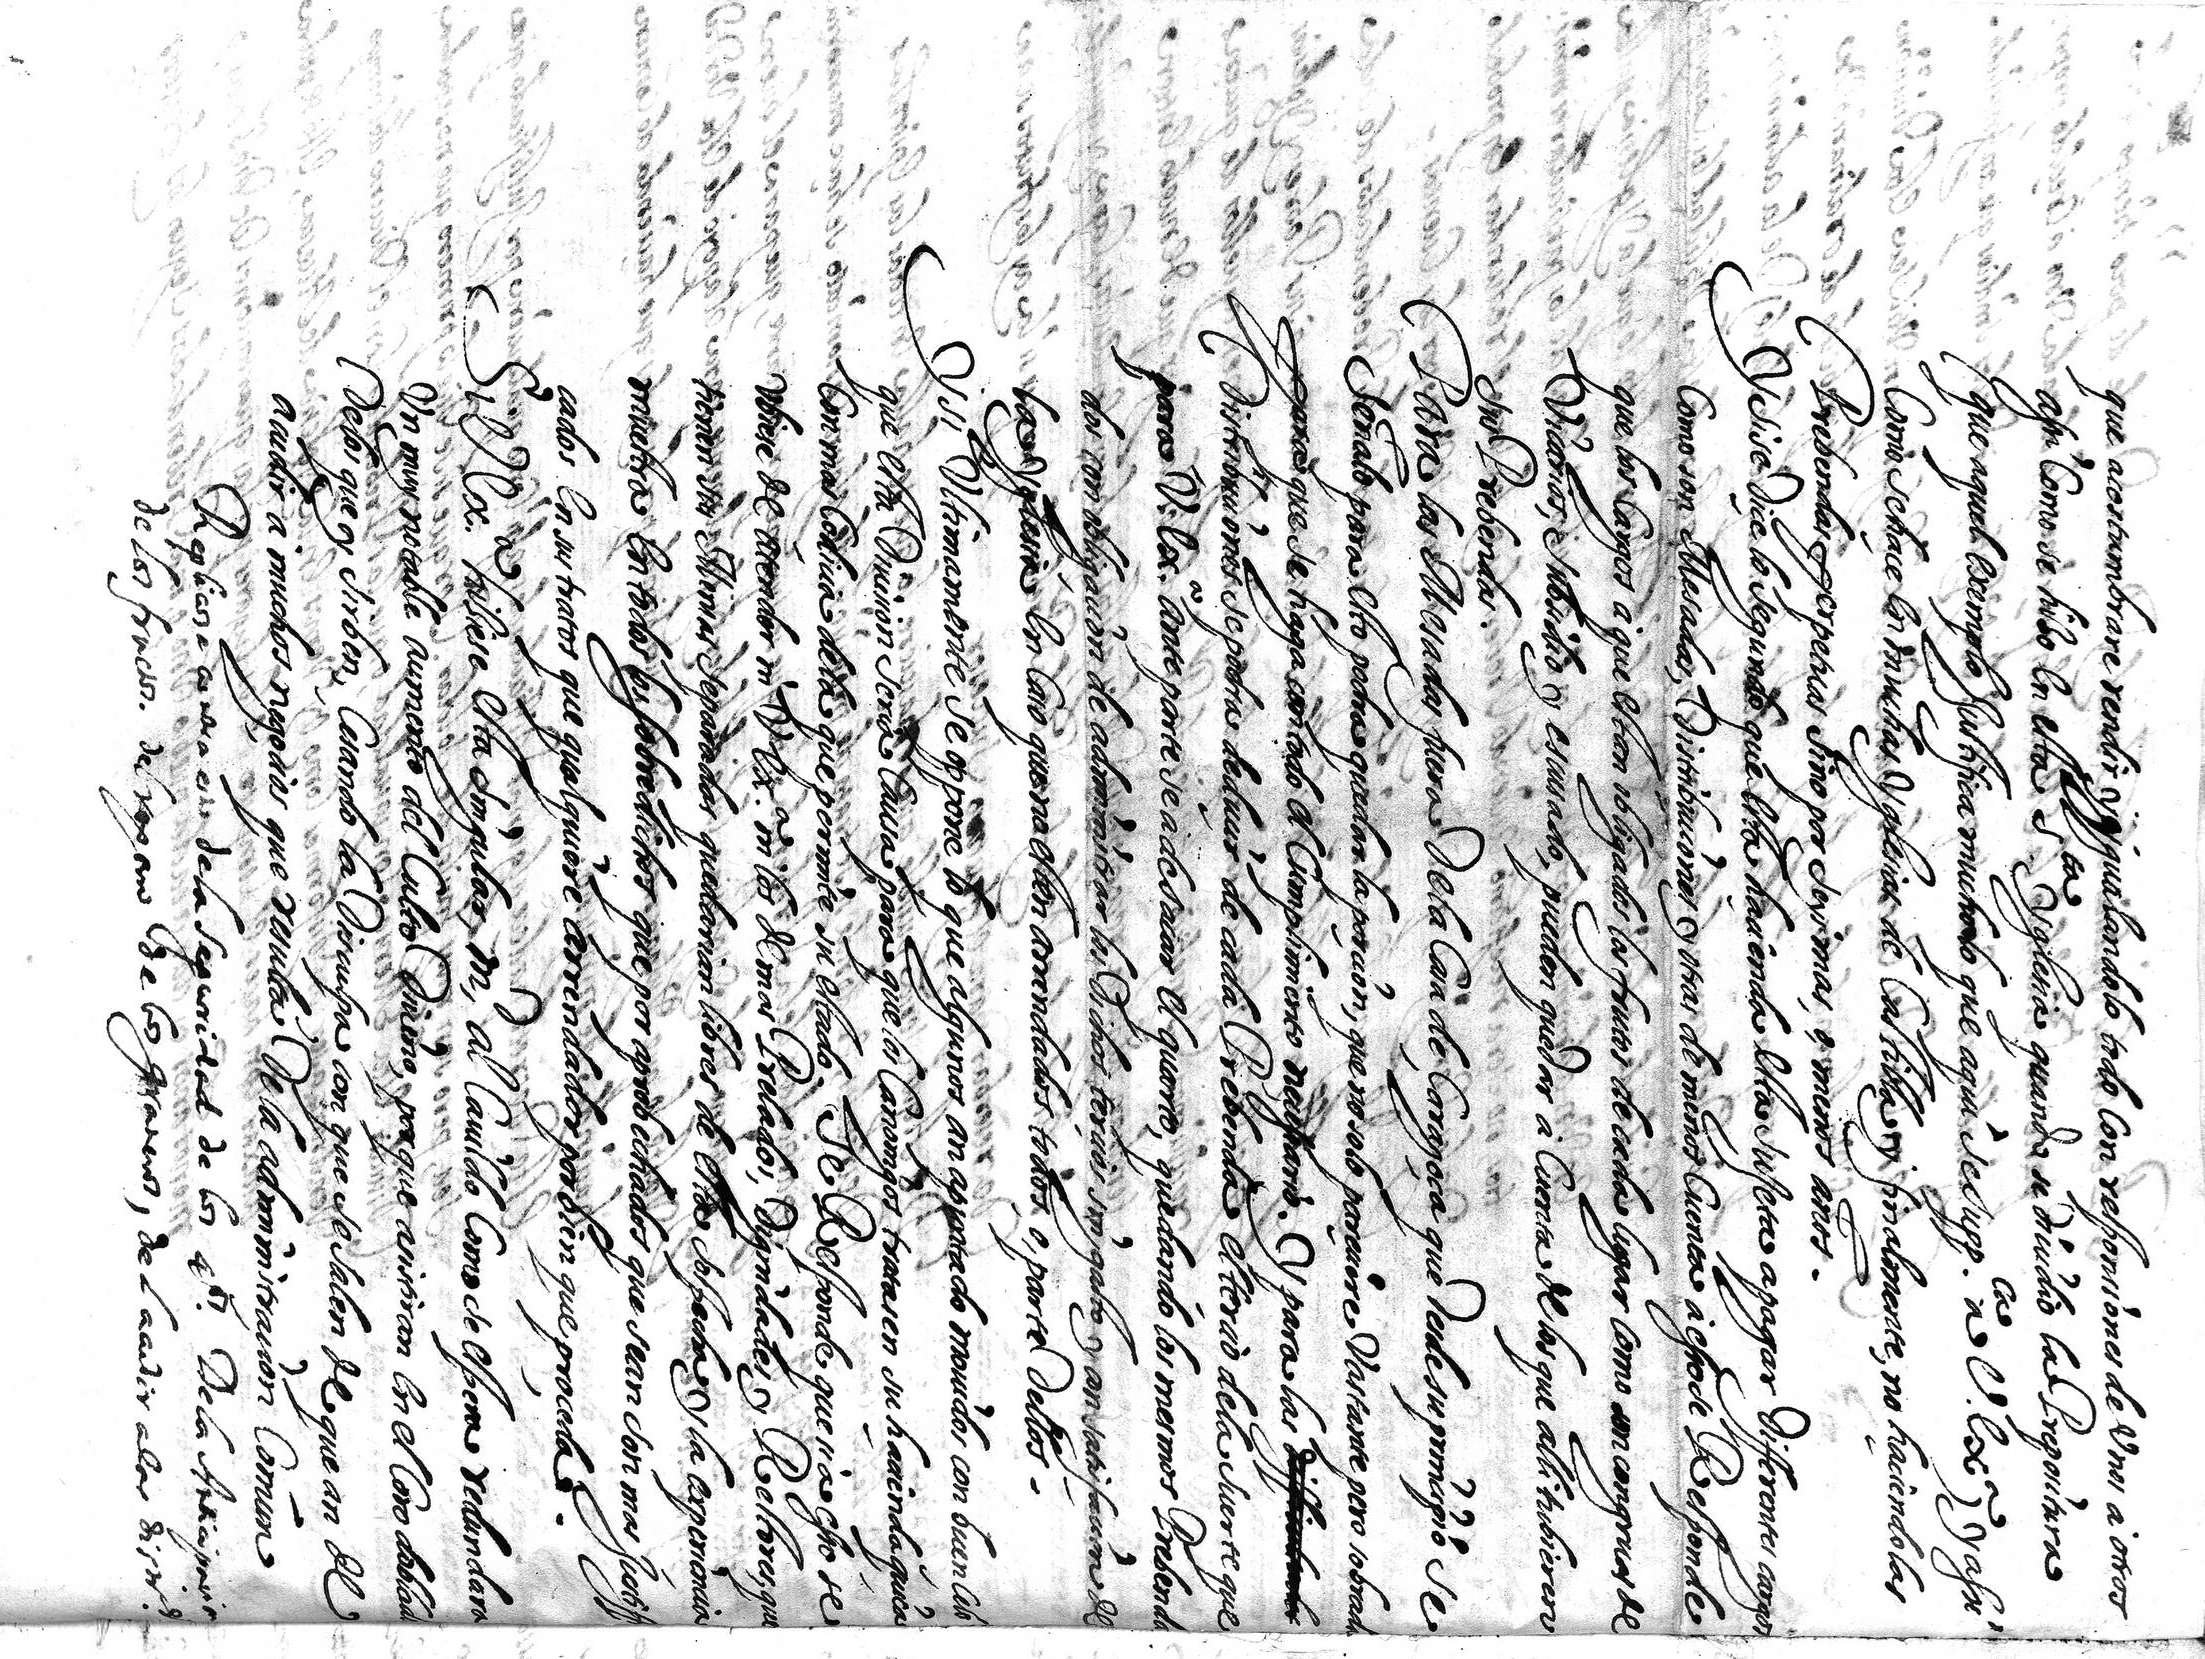 que acostumbrare rendir y ygualandolo todo con responsiones de Unos a otros
assi como se hiço en esta S.ta Yglesia quando se diuidio la Prepositura
y que aquel exemplo justifica mucho lo que aqui se supp.ca a V. Ex.a y assi
como se haçe en muchas Yglesias de Castilla y finalmente, no haciendo las
Prebendas perpetuas sino por sex̃imas, o menos anos.
Y si se diçe lo segundo que esta hacienda esta sujeta a pagar differentes cargos
como son Mesadas, Distribuciones y otras de menos cuenta a esso de Responde
que los cargos a que estan obligados los frutos de cada lugar como son congruas de
Vicarios, e subsidio y escusado, pueden quedar a cuenta de los que alli tubieren
sus Prebendas.
Para las Mesadas fuera De la Casa de Caragoça que desde su principio se
señalo para esto podra quedar la porcion, que no solo pareciere Vastante pero sobrada
para que se haga contado el cumplimento necessario. Y para las
Distribuciones se podra deducir de cada Prebenda el tercio de la suerte que
para V. Ex.a ante parte se a de sacar el quarto, quedando los mesmos Prebenda
dos con obligacion de administrar los dichos tercios sin gasto y con satisfacion de
la Yglesia en caso que no esten arrendados todos o, parte Dellos.
Y si Ultimamente se oppone lo que algunos an apuntado mouidos con buen çelo
que esta Diuision seria causa para que los Canonigos tratasen su hacienda quiça
con mas codicia de la que permite su estado. Se Responde que si a esso se
ubiese de atender ni V. Ex.a ni los demas Prelados, Dignidades y Rectores, que
tienen sus Mensas separadas quedarian libres de esta sospecha y la experiencia
muestra en todos los sobredichos que por aprobechados que sean son mas justifi
cados en sus tratos que qualquiere arrendador por bien que proceda.
Si V. Ex.a hiçiese esta singular m, al Cauildo como se espera redundara
en muy notable aumento del Culto Diuino, porque assistiran en el Coro doblad
Dellos que oy sirben, cesando la Disculpa con que se salen de que an de
acudir a muchos negocios que resultan De la administracion Comun
Replicase contra esso de la seguridad de los De la Anteiprior
de los frutos. de los graneros, de l acudir a los